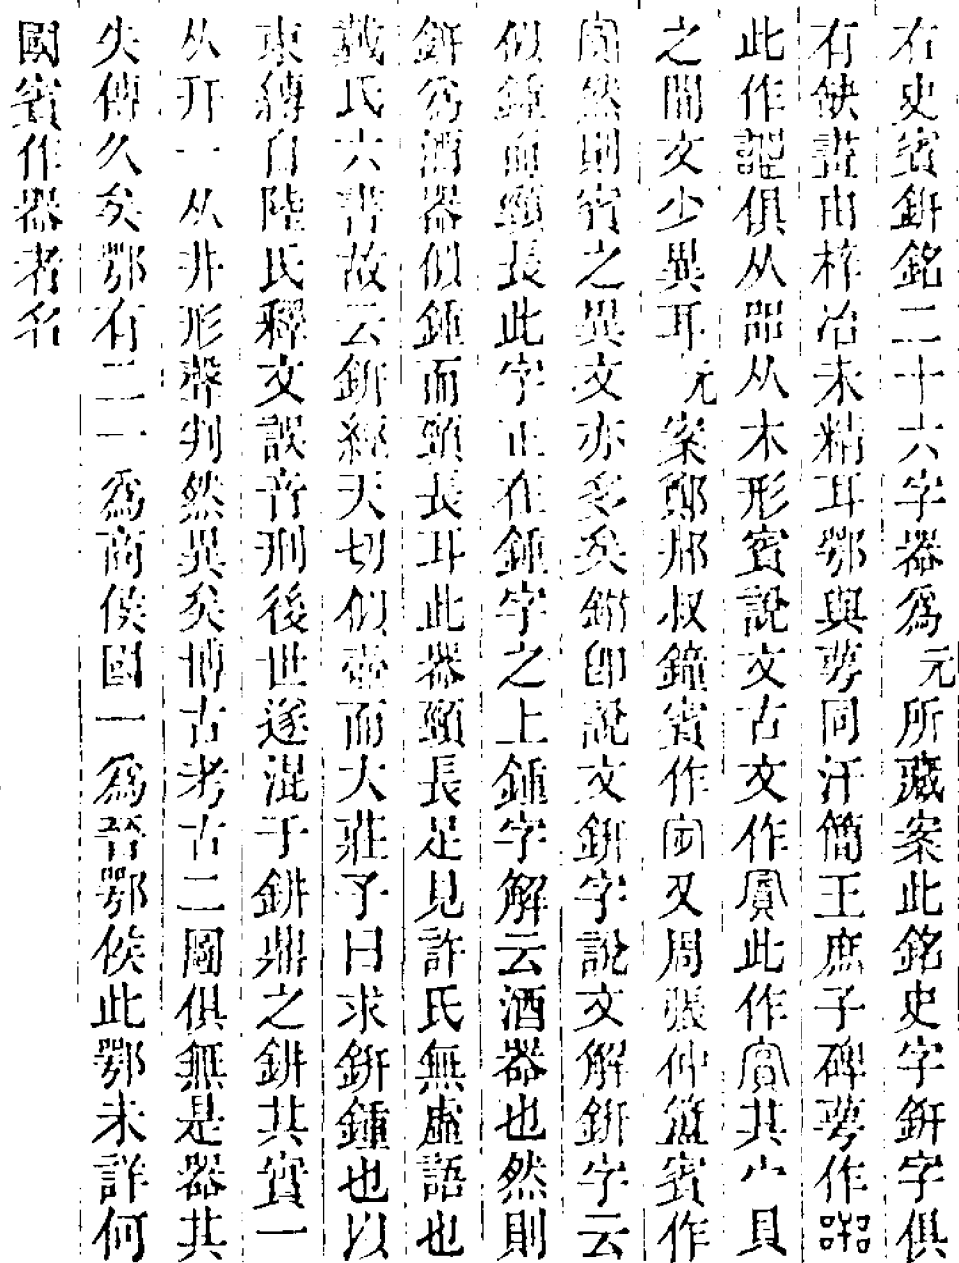 右史賓鈃銘二十六字器爲元所藏案此銘史字鈃字俱
有缺畫由梓冶未精耳鄂與萼同汗簡王庶子碑萼作
此作俱从吅从木形賓說文古文作此作其宀貝
之間文少異耳元案鄭邢叔鐘賓作又周張仲簠賓作
然則賓之異文亦多矣鈃卽說文鈃字說文解鈃字云
似鍾而頸長此字正在鍾字之上鍾字解云酒器也然則
鈃爲酒器似鍾而頸長耳此器頸長足見許氏無虛語也
戴氏六書故云鈃經天切似壺而大莊子曰求鈃鍾也以
束縛自陸氏釋文誤音刑後世遂混于鉼鼎之鉼其實一
从幵一从井形聲判然異矣博古考古二圖俱無是器其
失傳久矣鄂有二一爲商侯國一爲晉鄂侯此鄂未詳何
國賓作器者名